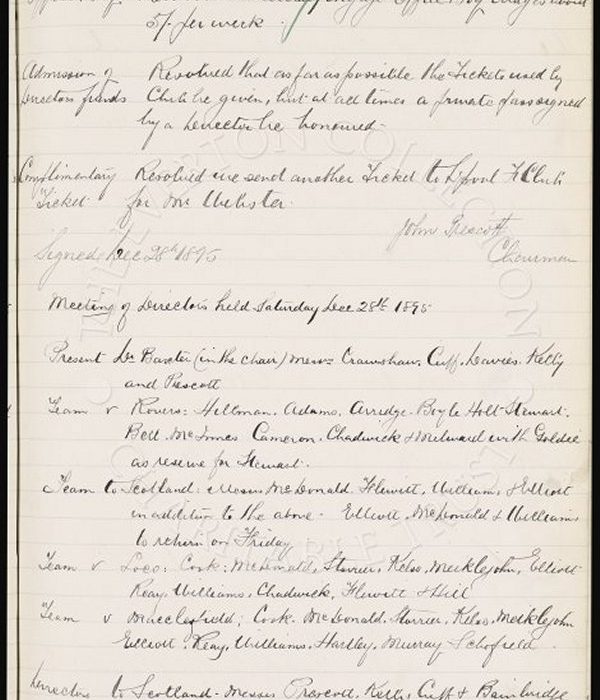 5/- per week.
Admission of Resolved that as far as possible the Tickets used by
Directors friends Club be given, but at all times a private pass signed
by a Director be honoured.
Complimentary Resolved we send another Ticket to L'pool F Club
Ticket for Mr Webster.
John Prescott
Signed Dec 28th 1895 Chairman
Meeting of Directors held Saturday Dec 28th 1895
Present Dr Baxter (in the chair) Messrs Crawshaw, Cuff, Davies, Kelly
and Prescott
Team v Rovers: Hillman, Adams, Arridge, Boyle Holt Stewart,
Bell, McInnes Cameron, Chadwick & Milward with Goldie
as reserve for Stewart.
Team to Scotland: Messrs McDonald, Flewitt, Williams & Elliott
in addition to the above. Elliott, McDonald & Williams
to return on Friday
Team v Loco: Cook: McDonald, Storrier, Kelso, Meiklejohn, Elliott
Reay, Williams, Chadwick, Flewitt & Hill
Team v Macclesfield; Cook. McDonald, Storrier, Kelso, Meiklejohn
Elliott, Reay, Williams, Hartley, Murray Schofield.
Directors to Scotland - Messrs Prescott, Kelly, Cuff & Bainbridge
THE EVERTON COLLECTION